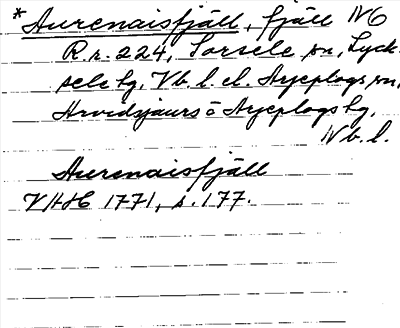 *Aurenaisfjäll, fjäll NG
R.r. 224, Sorsele sn, Lyck-
sele tg, Vb. l. el. Arjeplogs sn,
Arvidsjaurs o Arjeplogs tg,
Nb. l.
Aurenaisfjäll
VHAH 1771, s. 177.